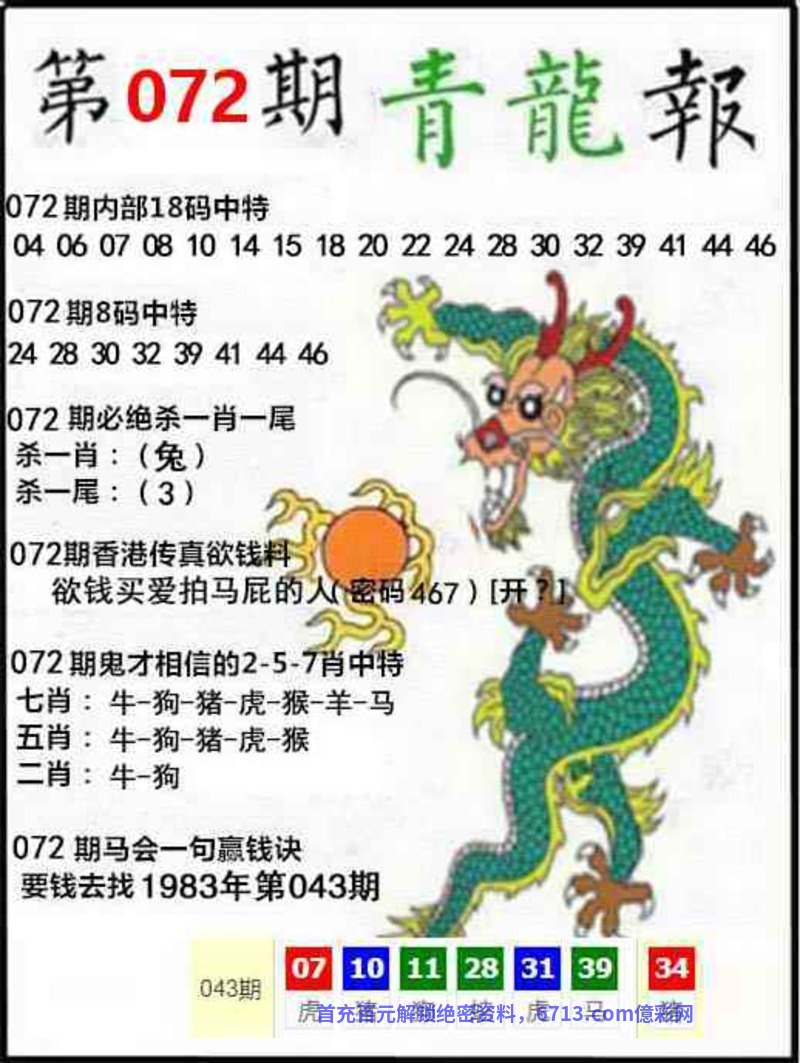 第072期青龍報
072期内部18码中特
04 06 07 08 10 14 15 18 20 22 24 28 30 32 39 41 44 46
072期8码中特
24 28 30 32 39 41 44 46
072期必绝杀一肖一尾
杀一肖：（兔）
杀一尾：（3）
072期香港传真欲钱料
欲钱买爱拍马屁的人(密码467）[开？]
072期鬼才相信的2-5-7肖中特
七肖：牛-狗-猪-虎-猴-羊-马
五肖：牛-狗-猪-虎-猴
二肖：牛-狗
072期马会一句赢钱诀
要钱去找1983年第043期
043期 07 10 11 28 31 39 34
虎 猪 虎 马
首充首元解锁绝密资料，6713.com億彩网